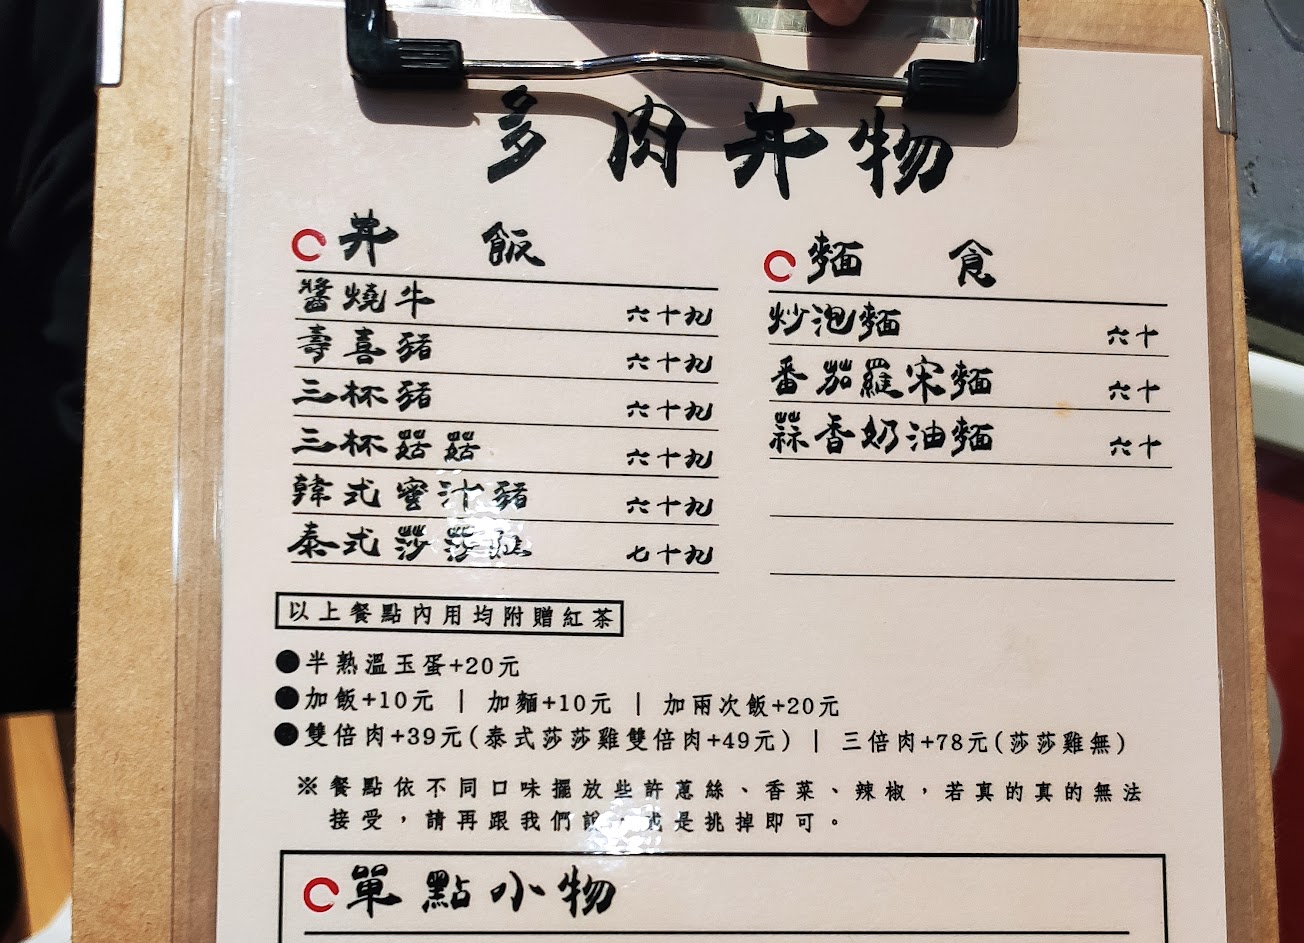 多肉丼物
丼飯
醬燒牛 六十九
壽喜豬 六十九
三杯豬 六十九
三杯菇菇 六十九
韓式蜜汁豬 六十九
泰式莎莎雞 七十九
麵食
炒泡麵 六十
番茄羅宋麵 六十
蒜香奶油麵 六十
以上餐點內用均附贈紅茶
●半熟溫玉蛋+20元
●加飯+10元 | 加麵+10元 | 加兩次飯+20元
●雙倍肉+39元(泰式莎莎雞雙倍肉+49元) | 三倍肉+78元(莎莎雞無)
※餐點依不同口味擺放些許蔥絲、香菜、辣椒，若真的真的無法
接受，請再跟我們說，或是挑掉即可。
單點小物